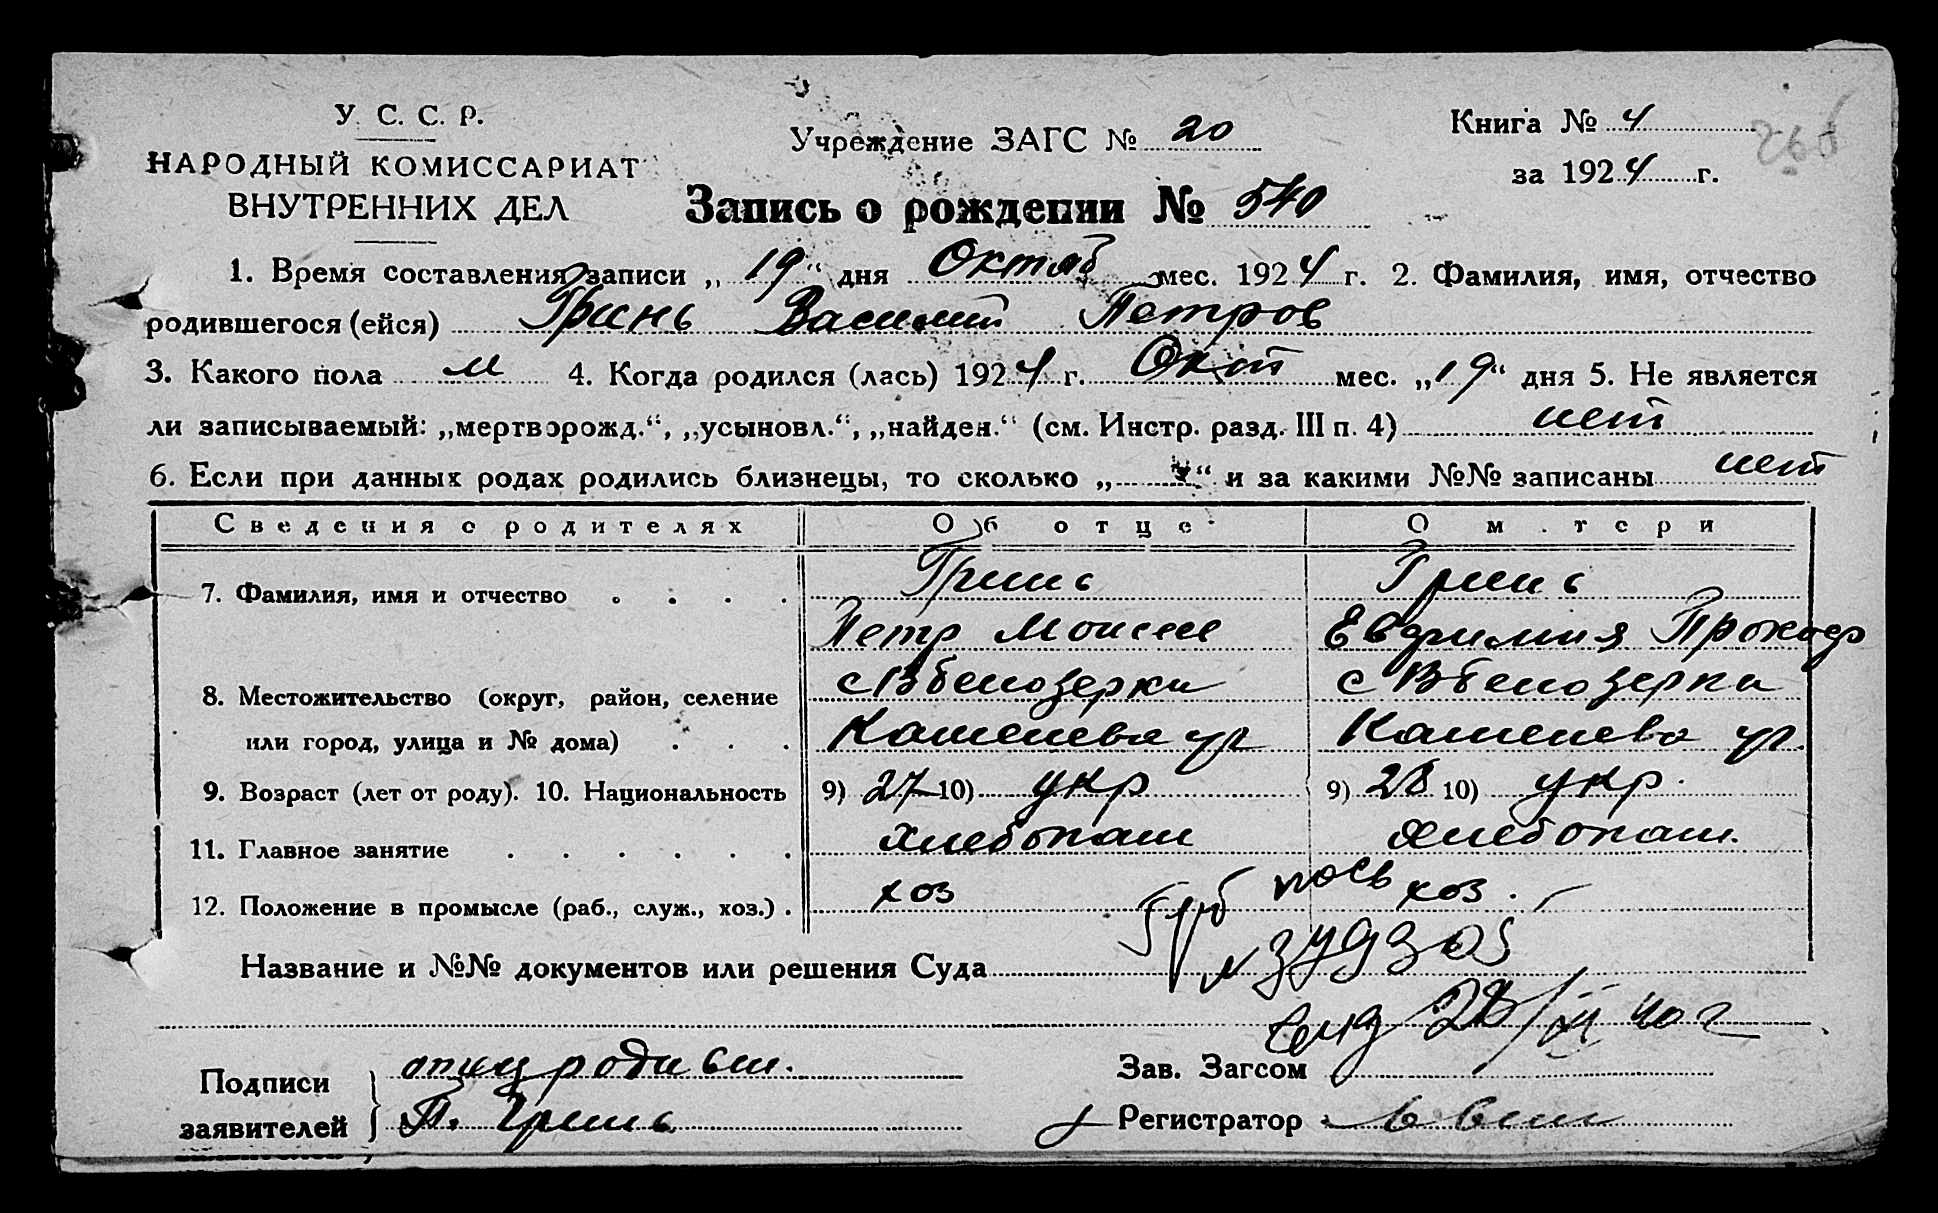 У. С. С. Р.
НАРОДНЫЙ КОМИССАРИАТ
ВНУТРЕННИХ ДЕЛ
Учреждение ЗАГС № 20
Книга № 4
за 1924 г.
Запись о рождении № 540
1. Время составления записи „19“ дня Октяб мес. 1924 г. 2. Фамилия, имя, отчество
родившегося (ейся) Гринь Василий Петров
3. Какого пола м 4. Когда родился (лась) 1924 г. Окт мес. „19“ дня 5. Не является
ли записываемый: „мертворожд.“, „усыновл.“, „найден.“ (см. Инстр. разд. III п. 4) нет
6. Если при данных родах родились близнецы, то сколько „ “ и за какими №№ записаны нет
Сведения о родителях Об отце О матери
7. Фамилия, имя и отчество Гринь Гринь
Петр Моисее Евфимия Прокоф
8. Местожительство (округ, район, селение с В белозерки с В белозерки
или город, улица и № дома) Кашенева ул Кашенева ул.
9. Возраст (лет от роду). 10. Национальность 9) 27 10) укр 9) 28 10) укр.
11. Главное занятие Хлебопаш Хлебопаш.
12. Положение в промысле (раб., служ., хоз.) хоз хоз.
Название и №№ документов или решения Суда
28/XI 40 г
Подписи заявителей отец родивш. Зав. Загсом
П. Гринь Регистратор